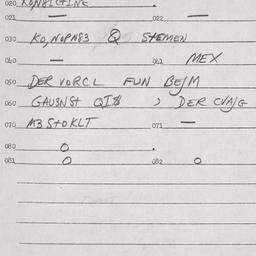 020 KONSICTINE
021 — 022 —
030 KO,NOPNS3 & STEMEN
040 — 041 MEX
050 DER VORCL FUN BEJM
060 GAUSNST QI8 , DER CVAJG
070 AB STOKLT 071 —
080 0
081 0 082 0